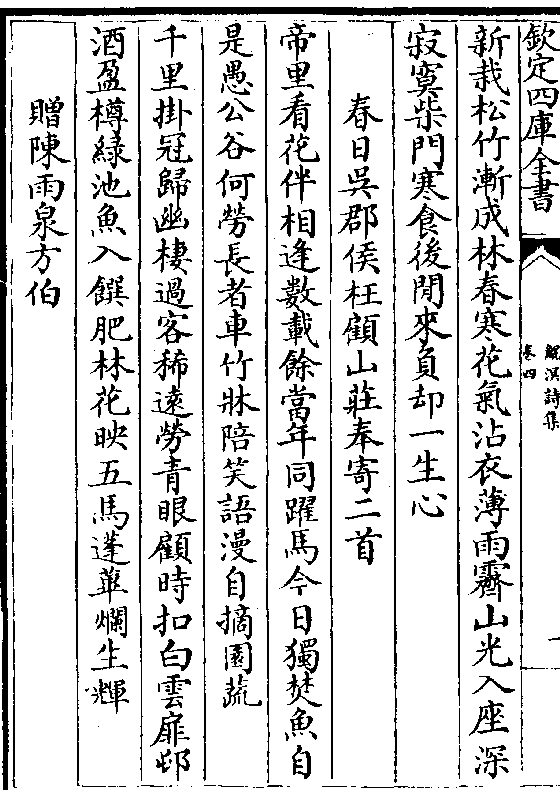 欽定四庫全書
卷四
新栽松竹漸成林春寒花氣沾衣薄雨霽山光入座深
寂寞柴門寒食後閒來負却一生心
春日吳郡侯枉顧山莊奉寄二首
帝里看花伴相逢數載餘當年同躍馬今日獨焚魚自
是愚公谷何勞長者車竹牀陪笑語漫自摘園蔬
千里掛冠歸幽棲過客稀遠勞青眼顧時扣白雲扉邨
酒盈樽綠池魚入饌肥林花映五馬蓬蓽爛生輝
贈陳雨泉方伯